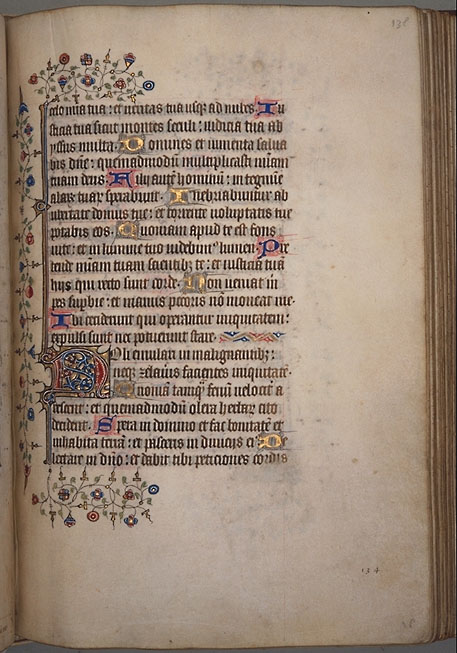 138
celo mīa tua: et ueritas tua usq; ad nubes. Iu
sticia tua sicut montes seculi: iudicia tua ab
issus multa. Homines et iumenta salua
bis dn̄e: quemadmodū multiplicasti mīam
tuam deus. Filij autē hominū: in tegmīe
alar tuar sperabunt. Inebriabuntur ab
ubertate domus tue: et torrente uoluptatis tue
potabis eos. Quoniam apud te est fons
uite: et in lumine tuo uidebim' lumen. Pre
tende mīam tuam scientibz te: et iusticiā tuā
hijs qui recto sunt corde. Non ueniat m̄
pes supbie: et manus pctoris nō moueat me.
Ibi ceciderunt qui operantur iniquitatem:
expulsi sunt nec potuerunt stare.
Noli emulari in malignantibz:
neqz zelaueris facientes iniquitatē.
Quoniā tamqz fenū velociter a
rescent: et quemadmodū olera herbarz cito
decident. Spera in domino et fac bonitatē et
inhabita terrā: et pasceris in diuicijs ei'. De
lectare in dn̄o: et dabit tibi peticiones cordis
134